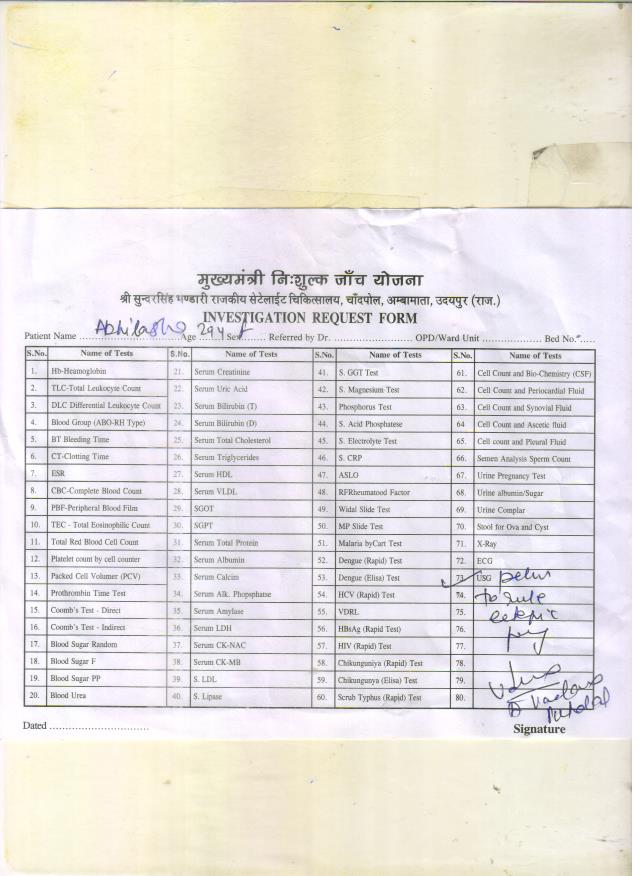 मुख्यमंत्री निःशुल्क जाँच योजना
श्री सुन्दरसिंह भण्डारी राजकीय सेटेलाईट चिकित्सालय, चाँदपोल, अम्बामाता, उदयपुर (राज.)
INVESTIGATION REQUEST FORM
Patient Name .................... Age 29 Y Sex F Referred by Dr. .................... OPD/Ward Unit .................. Bed No. .....
S.No. Name of Tests S.No. Name of Tests S.No. Name of Tests S.No. Name of Tests
1. Hb-Heamoglobin 21. Serum Creatinine 41. S. GGT Test 61. Cell Count and Bio-Chemistry (CSF)
2. TLC-Total Leukocyte Count 22. Serum Uric Acid 42. S. Magnesium Test 62. Cell Count and Periocardial Fluid
3. DLC Differential Leukocyte Count 23. Serum Bilirubin (T) 43. Phosphorus Test 63. Cell Count and Synovial Fluid
4. Blood Group (ABO-RH Type) 24. Serum Bilirubin (D) 44. S. Acid Phosphatese 64 Cell Count and Ascetic fluid
5. BT Bleeding Time 25. Serum Total Cholesterol 45. S. Electrolyte Test 65. Cell count and Pleural Fluid
6. CT-Clotting Time 26. Serum Triglycerides 46. S. CRP 66. Semen Analysis Sperm Count
7. ESR 27. Serum HDL 47. ASLO 67. Urine Pregnancy Test
8. CBC-Complete Blood Count 28. Serum VLDL 48. RFRheumatood Factor 68. Urine albumin/Sugar
9. PBF-Peripheral Blood Film 29. SGOT 49. Widal Slide Test 69. Urine Complar
10. TEC - Total Eosinophilic Count 30. SGPT 50. MP Slide Test 70. Stool for Ova and Cyst
11. Total Red Blood Cell Count 31. Serum Total Protein 51. Malaria byCart Test 71. X-Ray
12. Platelet count by cell counter 32. Serum Albumin 52. Dengue (Rapid) Test 72. ECG
13. Packed Cell Volumer (PCV) 33. Serum Calcim 53. Dengue (Elisa) Test 73. USG
14. Prothrombin Time Test 34. Serum Alk. Phopsphatse 54. HCV (Rapid) Test 74. to rule
15. Coomb's Test - Direct 35. Serum Amylase 55. VDRL 75.
16. Coomb's Test - Indirect 36. Serum LDH 56. HBsAg (Rapid Test) 76.
17. Blood Sugar Random 37. Serum CK-NAC 57. HIV (Rapid) Test 77.
18. Blood Sugar F 38. Serum CK-MB 58. Chikunguniya (Rapid) Test 78.
19. Blood Sugar PP 39. S. LDL 59. Chikungunya (Elisa) Test 79.
20. Blood Urea 40. S. Lipase 60. Scrub Typhus (Rapid) Test 80.
Dated .............................. Signature